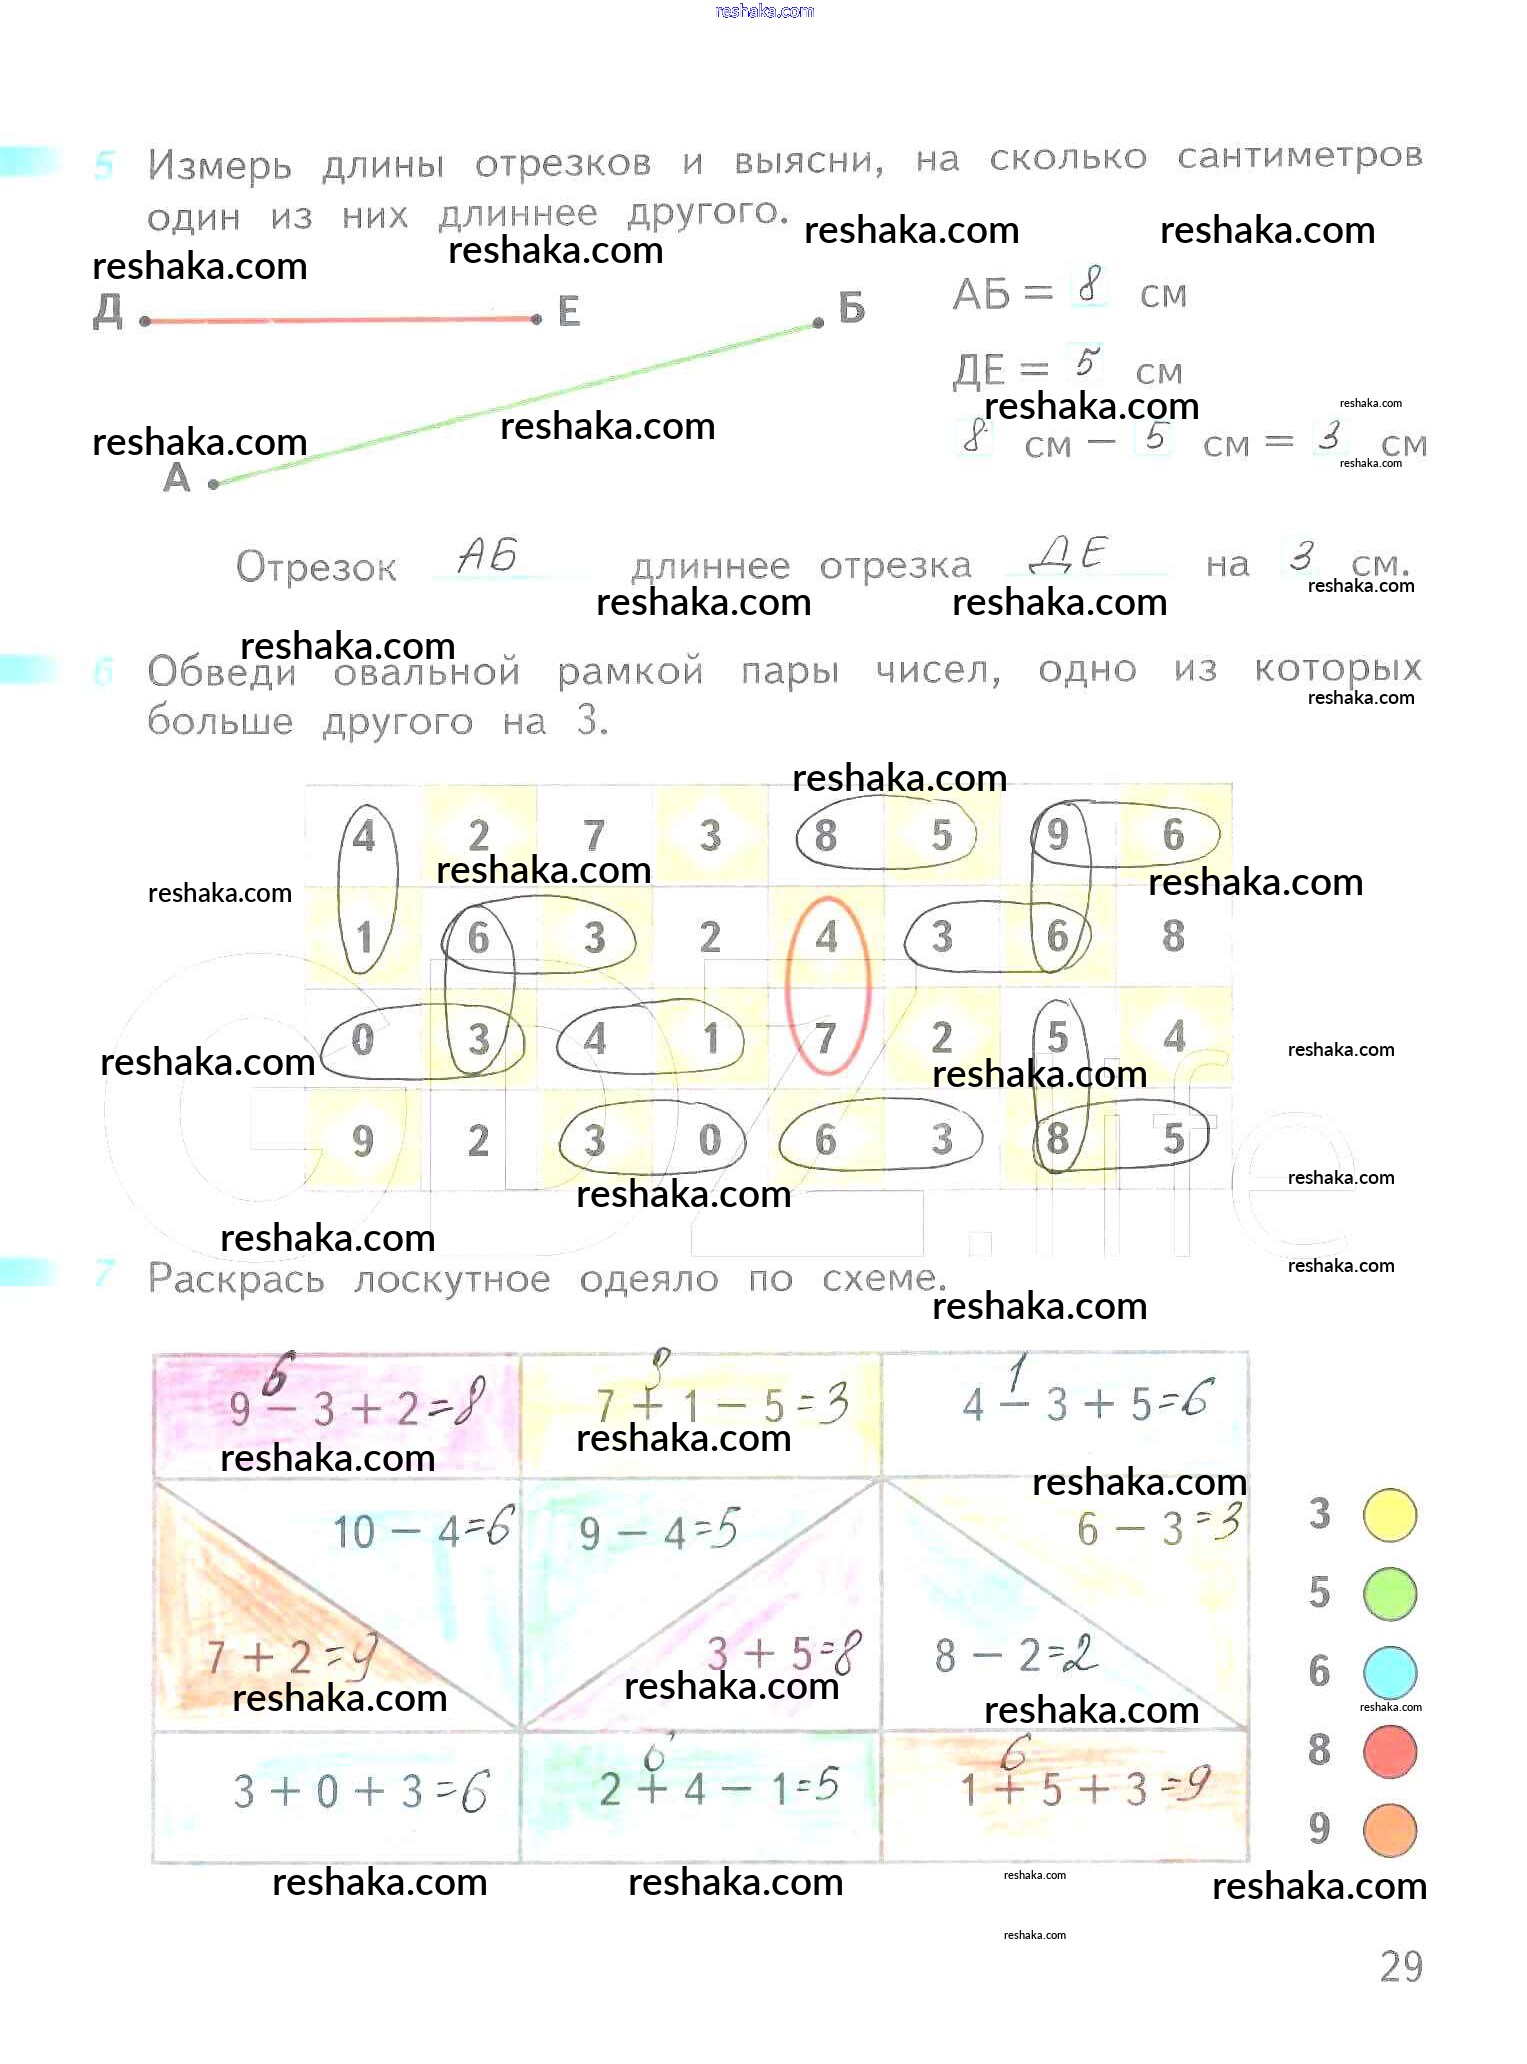 reshaka.com
5 Измерь длины отрезков и выясни, на сколько сантиметров
один из них длиннее другого.
reshaka.com reshaka.com reshaka.com reshaka.com
Д Е Б АБ = 8 см
ДЕ = 5 см
reshaka.com reshaka.com reshaka.com reshaka.com
8 см − 5 см = 3 см
reshaka.com
А
Отрезок АБ длиннее отрезка ДЕ на 3 см.
reshaka.com reshaka.com reshaka.com
reshaka.com
6 Обведи овальной рамкой пары чисел, одно из которых
больше другого на 3.
reshaka.com
reshaka.com
4 2 7 3 8 5 9 6
reshaka.com reshaka.com reshaka.com
1 6 3 2 4 3 6 8
0 3 4 1 7 2 5 4
reshaka.com reshaka.com reshaka.com
9 2 3 0 6 3 8 5
GDZ.life
reshaka.com reshaka.com
reshaka.com
7 Раскрась лоскутное одеяло по схеме.
reshaka.com
reshaka.com
6 3 1
9 − 3 + 2 = 8 7 + 1 − 5 = 3 4 − 3 + 5 = 6
reshaka.com reshaka.com reshaka.com
10 − 4 = 6 9 − 4 = 5 6 − 3 = 3 3
5
7 + 2 = 9 3 + 5 = 8 8 − 2 = 2 6
reshaka.com reshaka.com reshaka.com reshaka.com
6 6 8
3 + 0 + 3 = 6 2 + 4 − 1 = 5 1 + 5 + 3 = 9
9
reshaka.com reshaka.com reshaka.com reshaka.com
reshaka.com
29